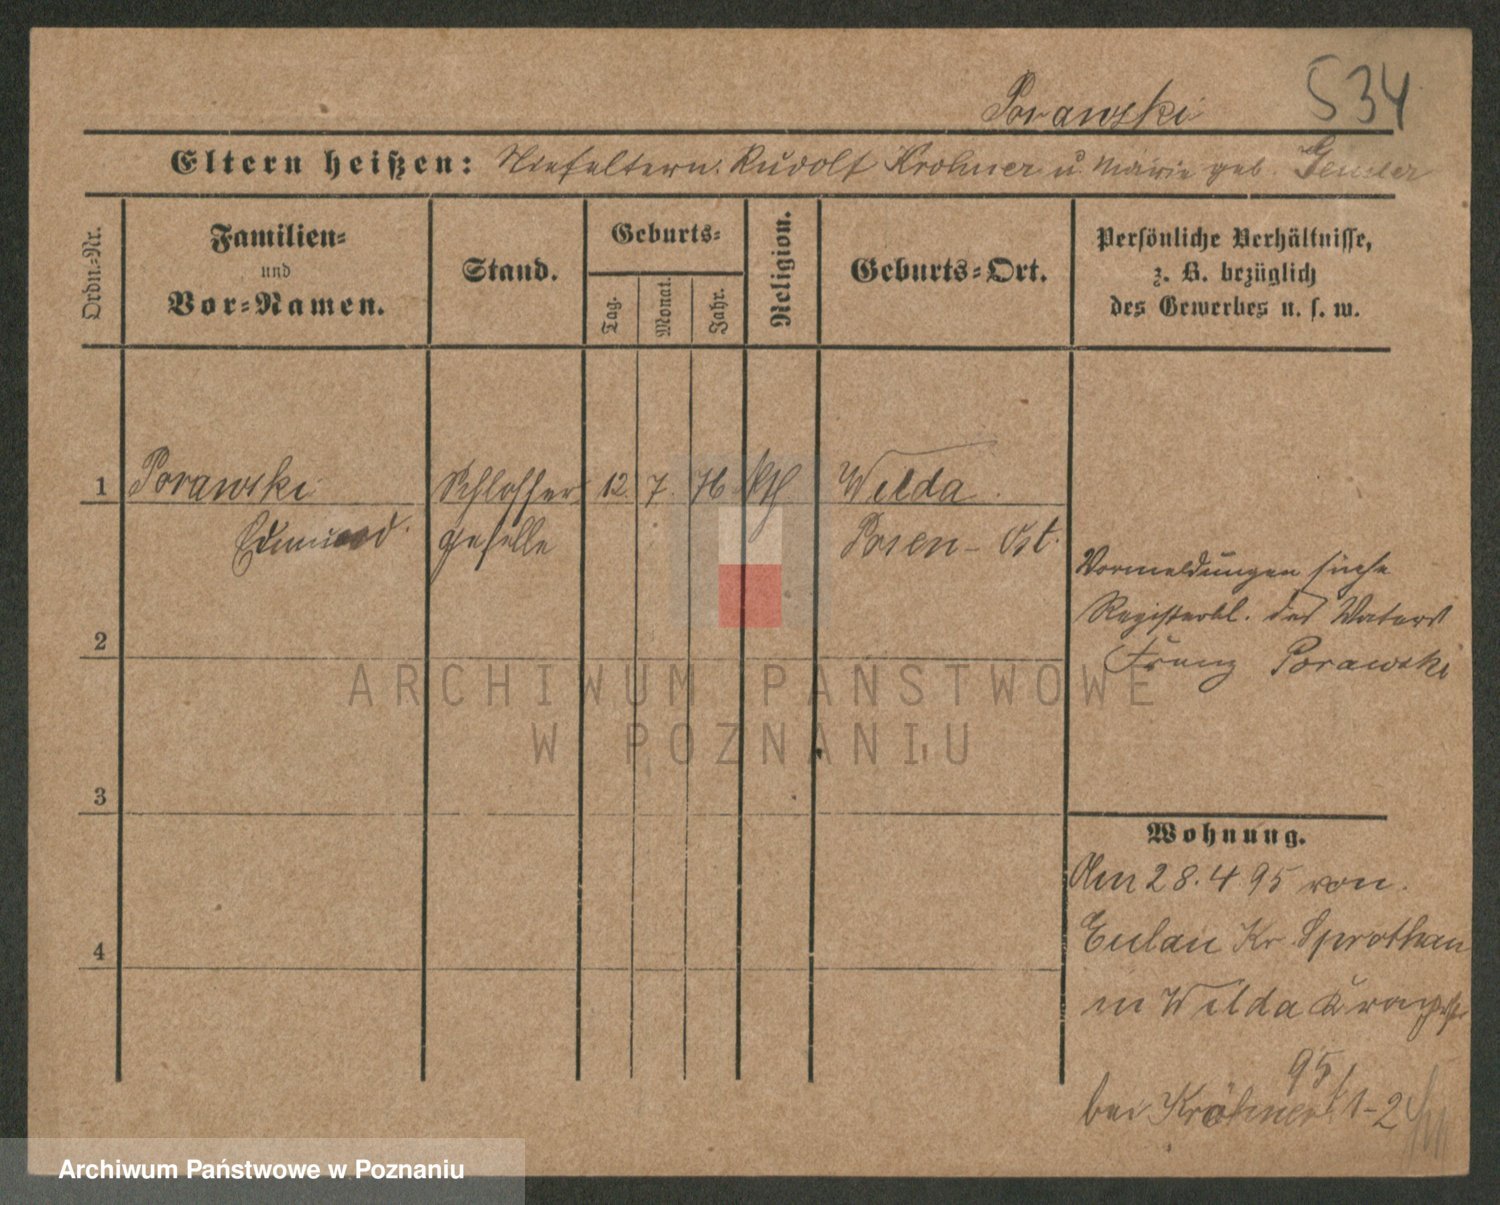 534
Porawski
Eltern heißen: Stiefeltern: Rudolf Krohner u. Marie geb.
Ordn.-Nr.
Familien-
und
Vor-Namen.
Stand.
Geburts-
Tag.
Monat.
Jahr.
Religion.
Geburts-Ort.
Persönliche Verhältnisse,
z. B. bezüglich
des Gewerbes u. s. w.
1 Porawski Schlosser 12. 7. 76 kth Wilda.
Edmund. geselle Posen-Ost.
Vormeldungen siehe
Registerbl. des Vaters
Franz Porawski
2
3
4
Wohnung.
Am 28.4.95 von
Eulau Kr. Sprottau
in Wilda
95
bei Kröhner 1-2
ARCHIWUM PAŃSTWOWE
W POZNANIU
Archiwum Państwowe w Poznaniu